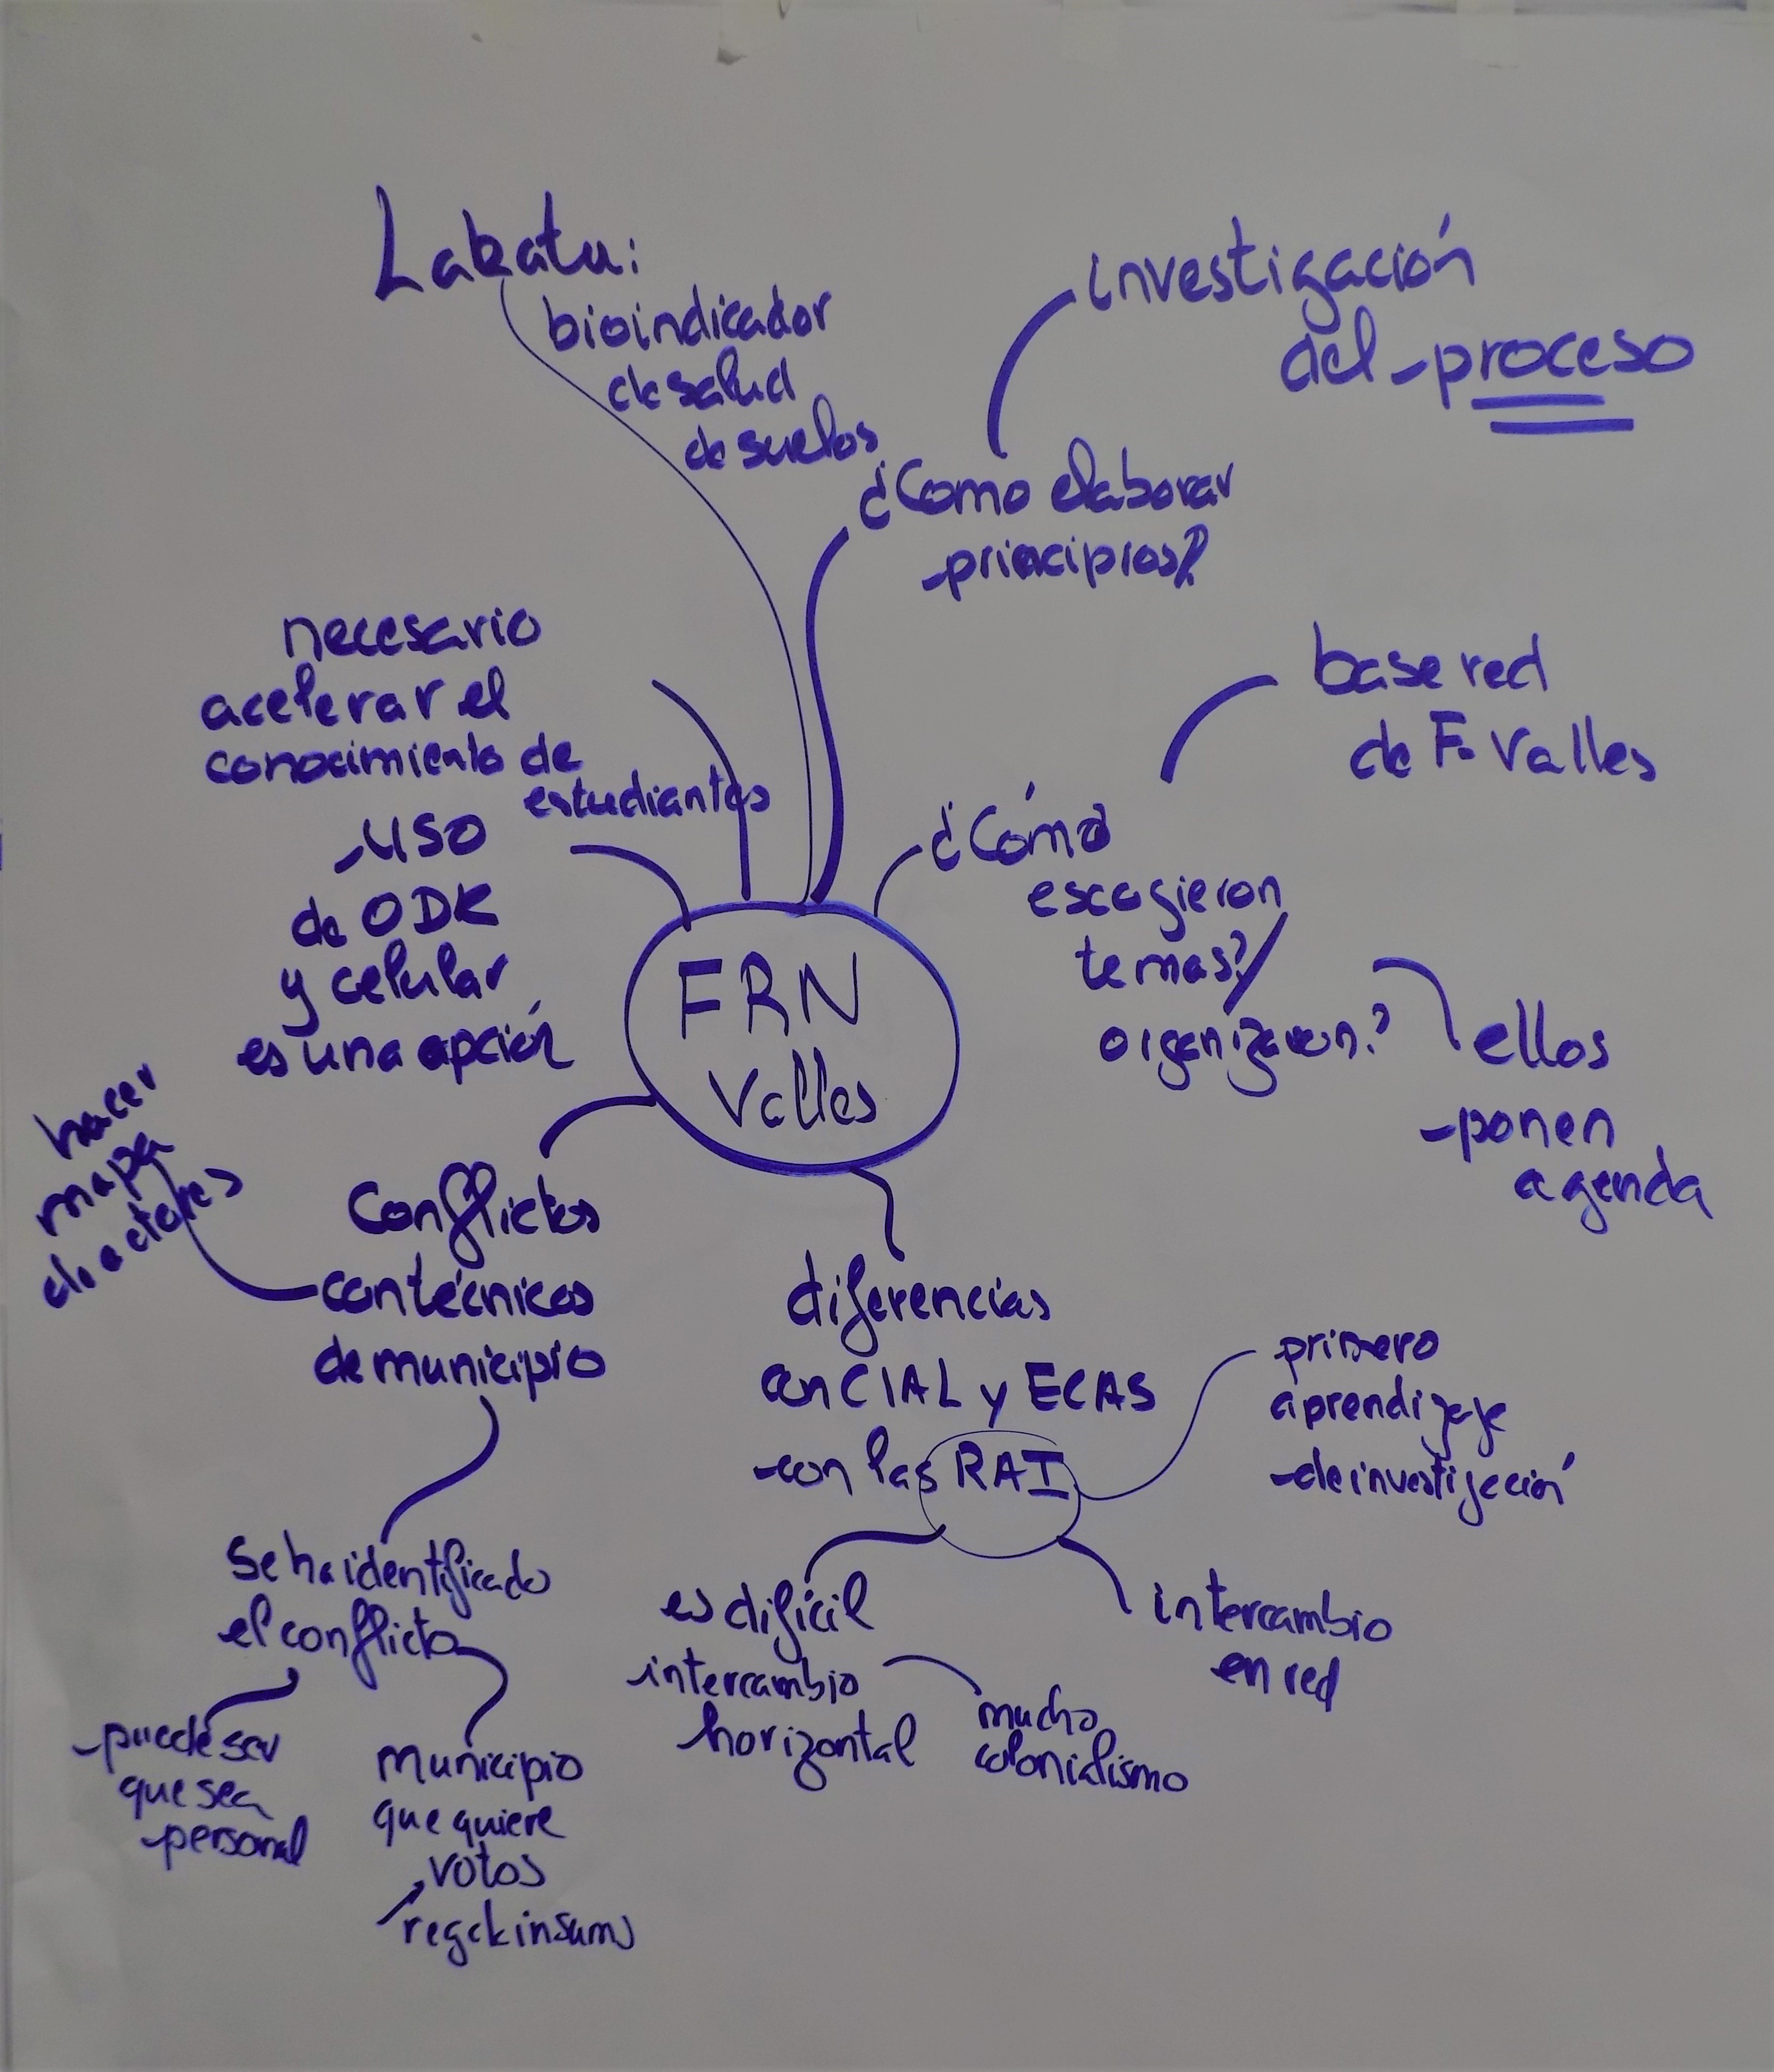 Labatu:
bioindicador
de salud
de suelos
investigación
del proceso
¿Como elaborar
principios?
necesario
acelerar el
conocimiento de
estudiantes
base red
de F. Valles
¿Cómo
escogieron
temas?/
organizacion?
ellos
ponen
agenda
uso
de ODK
y celular
es una opción
FRN
Valles
hacer
mapa
de actores
Conflictos
con técnicos
de municipio
diferencias
con CIAL y ECAS
con las RAI
primero
aprendizaje
de investigación
Se ha identificado
el conflicto
es dificil
intercambio
horizontal
mucho
colonialismo
intercambio
en red
puede ser
que sea
personal
Municipio
que quiere
votos